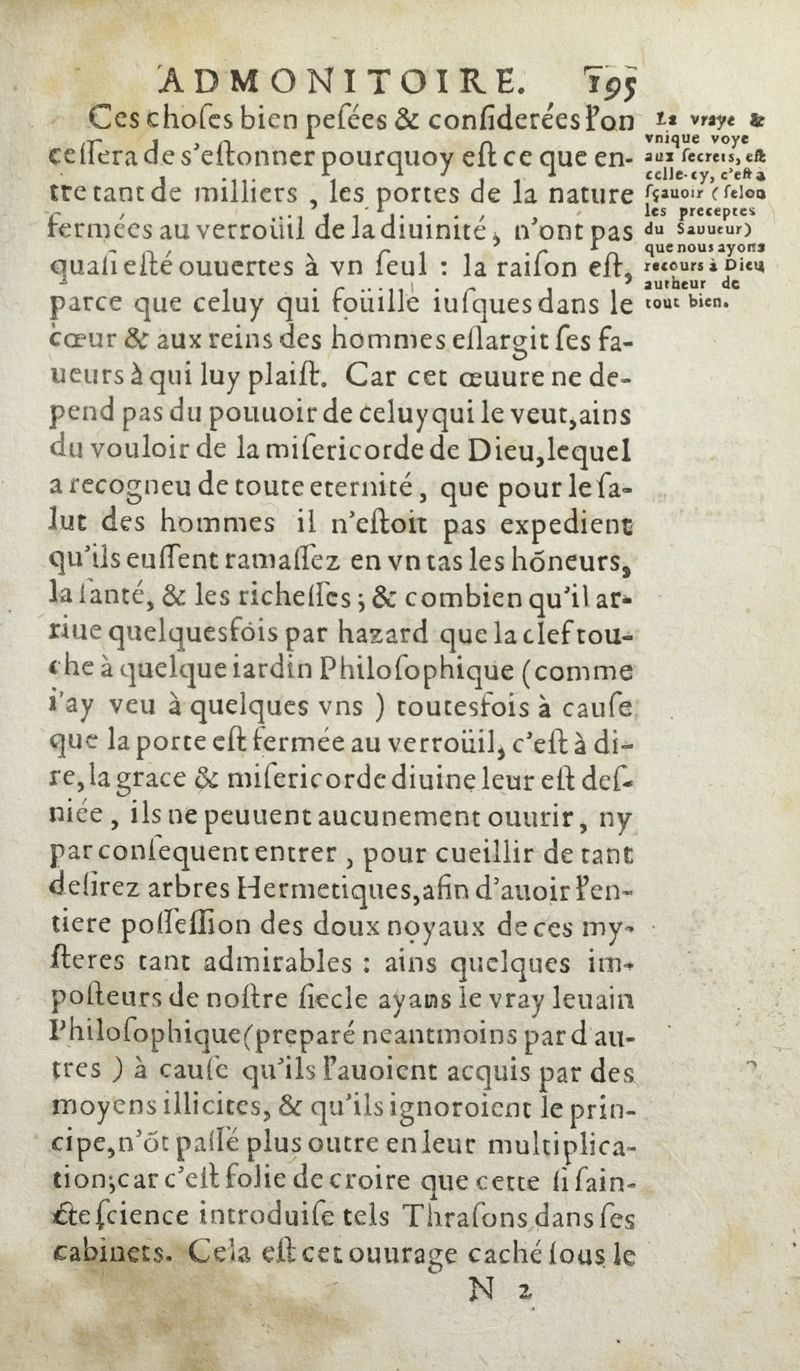 ADMONITOIRE. 195
Ces choſes bien peſées & conſiderées l'on
ceſſera de s'eſtonner pourquoy eſt ce que en-
tre tant de milliers , les portes de la nature
fermées au verroüil de la diuinité, n'ont pas
quaſi eſté ouuertes à vn ſeul : la raiſon eſt,
parce que celuy qui foüille iuſques dans le
cœur & aux reins des hommes eſlargit ſes fa-
ueurs à qui luy plaiſt. Car cet œuure ne de-
pend pas du pouuoir de celuy qui le veut,ains
du vouloir de la miſericorde de Dieu,lequel
a recogneu de toute eternité, que pour le ſa-
lut des hommes il n'eſtoit pas expedient
qu'ils euſſent ramaſſez en vn tas les hõneurs,
la ſanté, & les richeſſes ; & combien qu'il ar-
riue quelquesfois par hazard que la clef tou-
che à quelque iardin Philoſophique (comme
i'ay veu à quelques vns ) toutesfois à cauſe
que la porte eſt fermée au verroüil, c'eſt à di-
re, la grace & miſericorde diuine leur eſt deſ-
niée , ils ne peuuent aucunement ouurir, ny
par conſequent entrer , pour cueillir de tant
deſirez arbres Hermetiques,afin d'auoir l'en-
tiere poſſeſſion des doux noyaux de ces my-
ſteres tant admirables : ains quelques im-
poſteurs de noſtre ſiecle ayans le vray leuain
Philoſophique(preparé neantmoins par d'au-
tres ) à cauſe qu'ils l'auoient acquis par des
moyens illicites, & qu'ils ignoroient le prin-
cipe,n'õt paſſé plus outre en leur multiplica-
tion;car c'eſt folie de croire que cette ſi ſain-
cte ſcience introduiſe tels Thraſons dans ſes
cabinets. Cela eſt cet ouurage caché ſous le
N 2
La vraye &
vnique voye
aux ſecrets, eſt
celle-cy, c'eſt à
ſçauoir ( ſelon
les preceptes
du Sauueur)
que nous ayons
recours à Dieu
autheur de
tout bien.